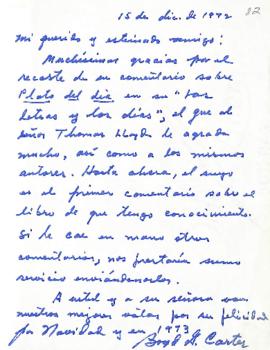 82
15 de dic. de 1972
Mi querido y estimado amigo:
Muchísimas gracias por el
recorte de su comentario sobre
Plato del día en su "Las
letras y los días", el que al
señor Thomas Lloyd le agrada
mucho, así como a los mismos
autores. Hasta ahora, el suyo
es el primer comentario sobre el
libro de que tengo conocimiento.
Si le cae en mano otros
comentarios, nos prestaría sumo
servicio enviándonoslos.
A usted y a su señora van
nuestros mejores votos por su felicidad
por Navidad y en 1973
Boyd G. Carter